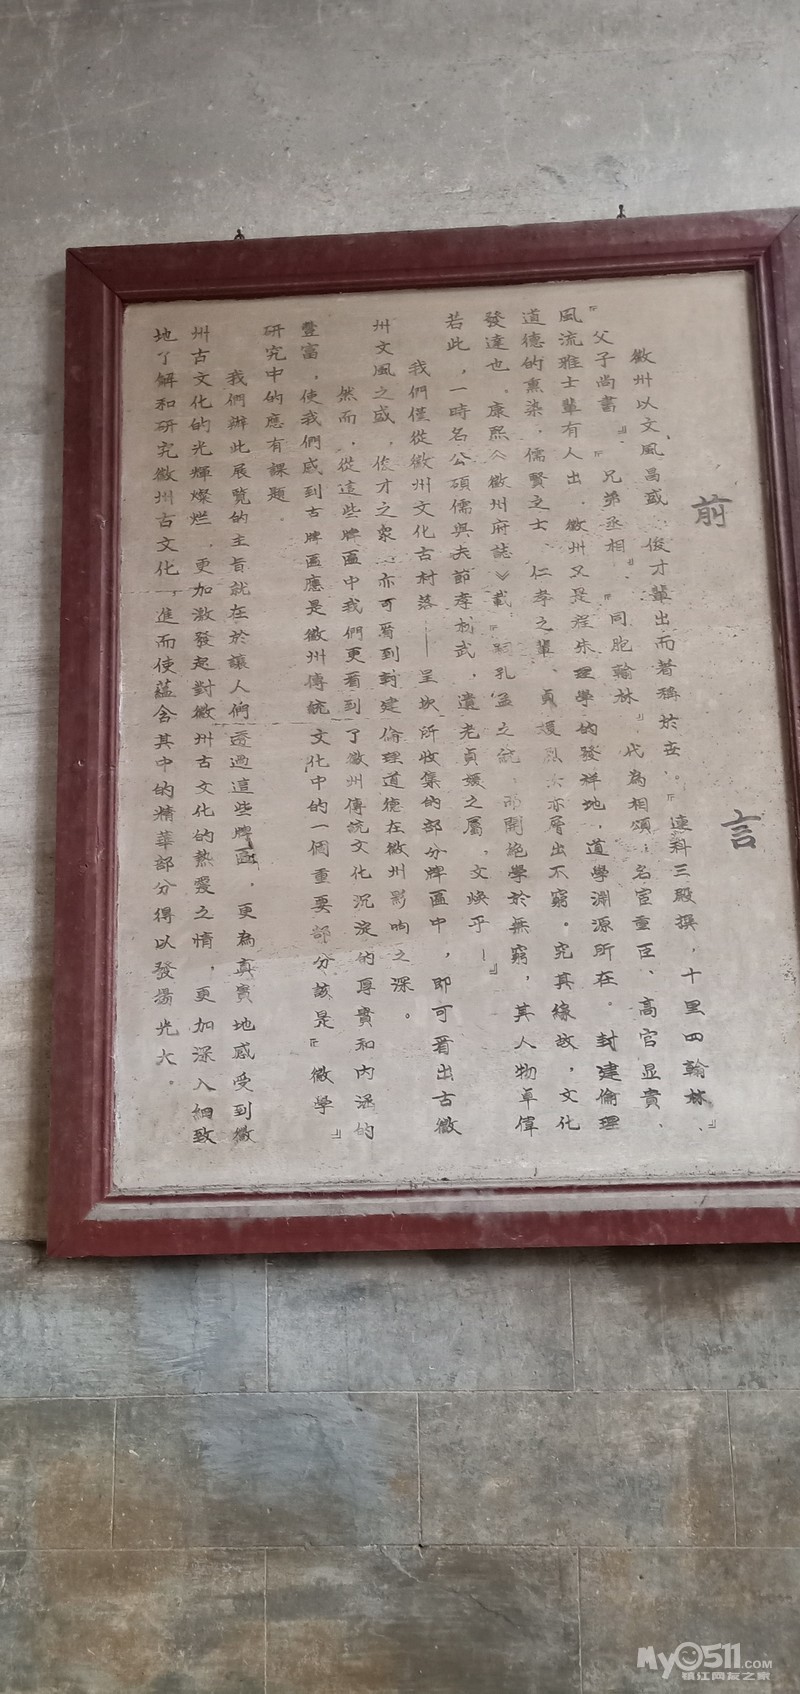 前言
徽州以文風昌盛、俊才輩出而著稱於世。『連科三殿撰，十里四翰林、』
『父子尚書』、『兄弟丞相』、『同胞翰林』代為相頌；名宦重臣、高官显貴、
風流雅士輩有人出。徽州又是程朱理學的發祥地，道學淵源所在。封建倫理
道德的熏染，儒賢之士、仁孝之輩、貞媛烈女亦層出不窮。究其緣故，文化
發達也。康熙《徽州府誌》載『孔孟之統，而開絶學於無窮，其人物卓偉
若此，一時名公碩儒與夫節孝材武，遺老貞媛之屬，文焕乎—』
我們僅從徽州文化古村落——呈坎所收集的部分牌匾中，即可看出古徽
州文風之盛，俊才之衆，亦可看到封建倫理道德在徽州影响之深。
然而，從這些牌匾中我們更看到了徽州傳統文化沉淀的厚貴和内涵的
豐富，使我們感到古牌匾應是徽州傳統文化中的一個重要部分該是『徽學』
研究中的應有課題。
我們辦此展覽的主旨就在於讓人們透過這些牌匾，更為真實地感受到徽
州古文化的光輝燦烂，更加激發起對徽州古文化的熱爱之情，更加深入細致
地了解和研究徽州古文化，進而使蕴含其中的精華部分得以發揚光大。
My0511.COM
镇江网友之家